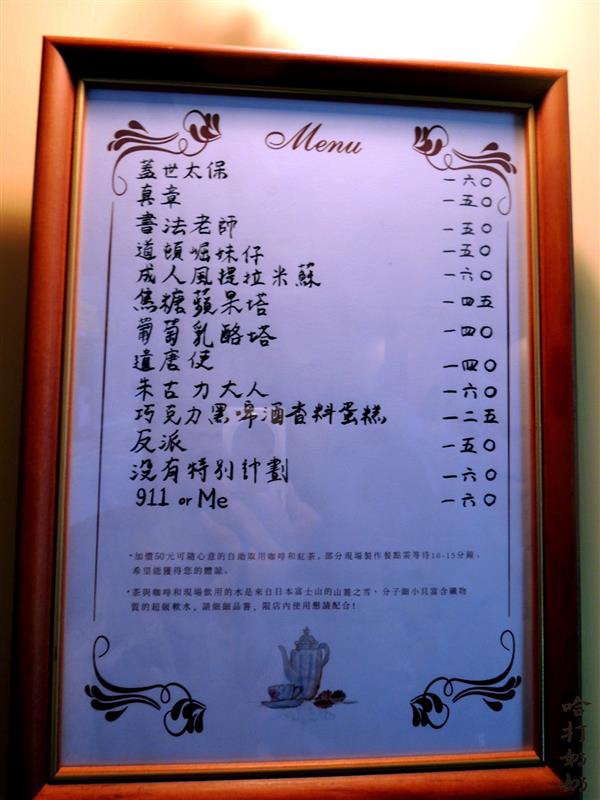 Menu
蓋世太保 一六〇
真章 一五〇
書法老師 一五〇
道頓崛妹仔 一五〇
成人風提拉米蘇 一六〇
焦糖蘋果塔 一四五
葡萄乳酪塔 一四〇
遣唐使 一四〇
朱古力大人 一六〇
巧克力黑啤酒香料蛋糕 一二五
反派 一五〇
沒有特別計劃 一六〇
911 or Me 一六〇
*加價50元可隨心意的自助取用咖啡和紅茶。部分現場製作餐點需等待10-15分鐘。
希望能獲得您的體諒。
*茶與咖啡和現場飲用的水是來自日本富士山的山麓之雪。分子細小具富含礦物
質的超級軟水。請細細品嘗。限店內使用懇請配合!
哈打奶奶